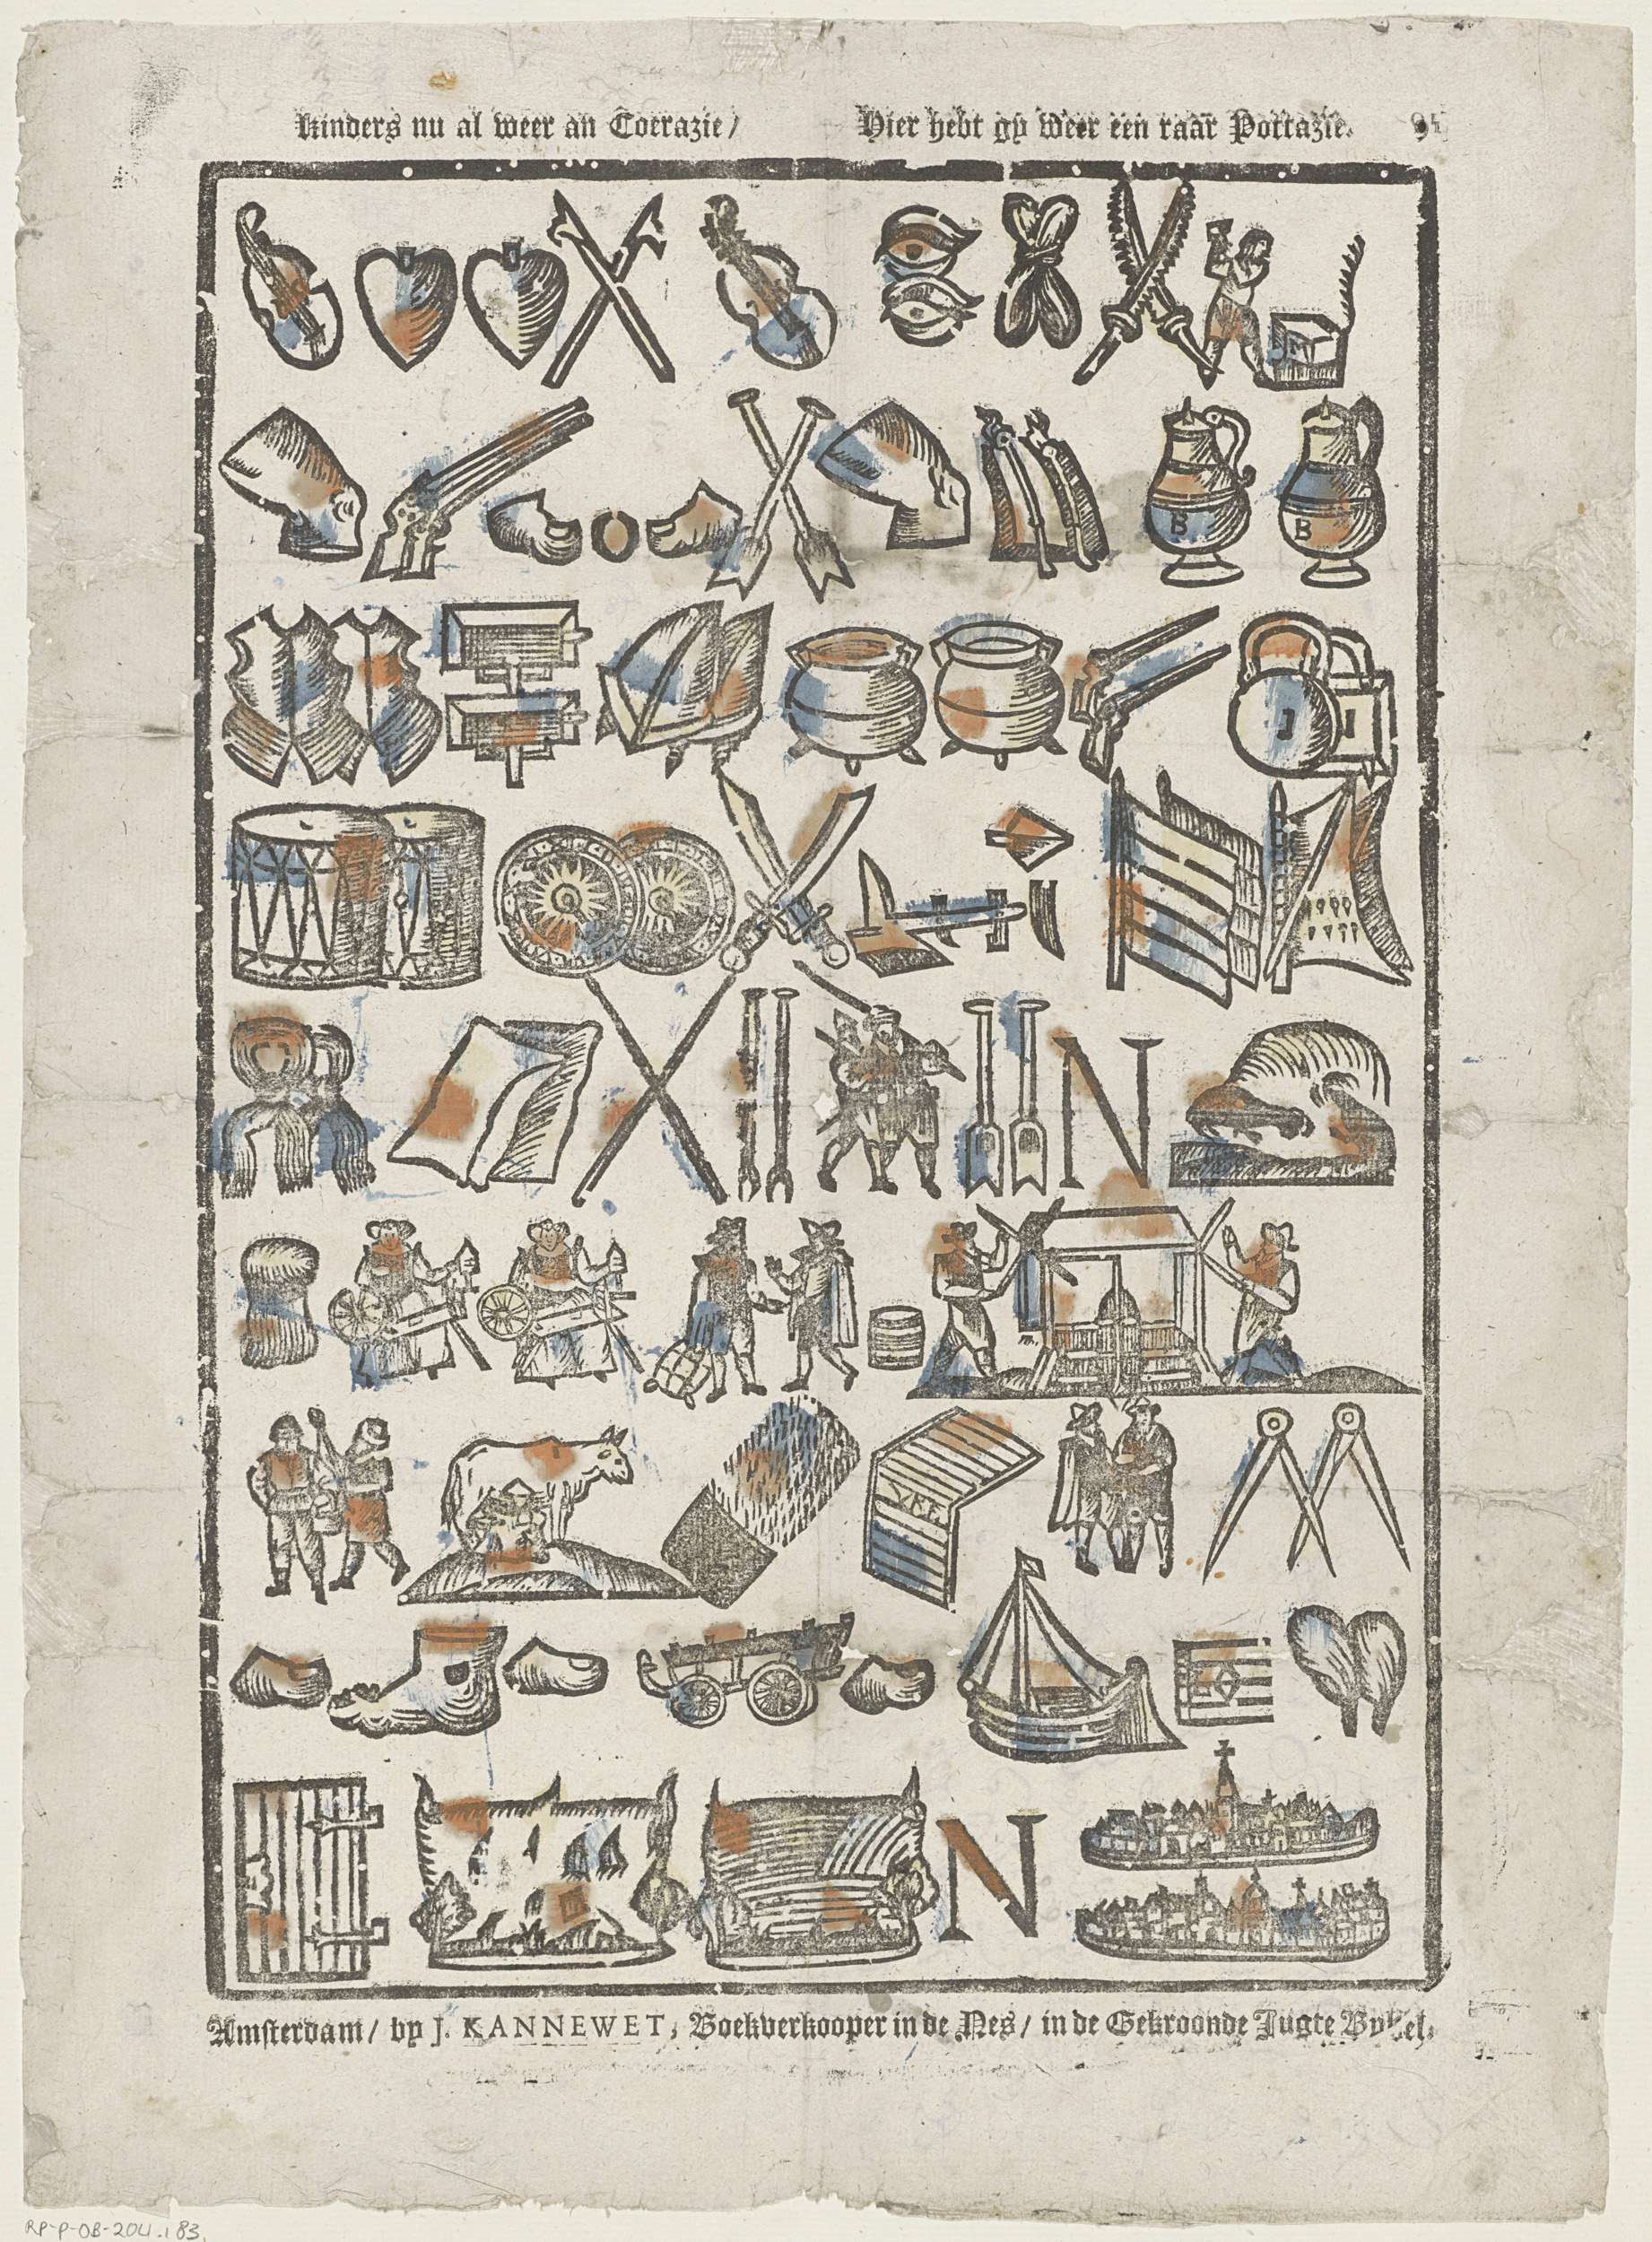 Kinders nu al weer an Coerazie / Hier hebt gy weer een raar Pottazie.
M
B B
N
VRE
N
Amsterdam / by J. KANNEWET, Boekverkooper in de Nes / in de Gekroonde Jugte Bybel.
RP-P-OB-204.183.